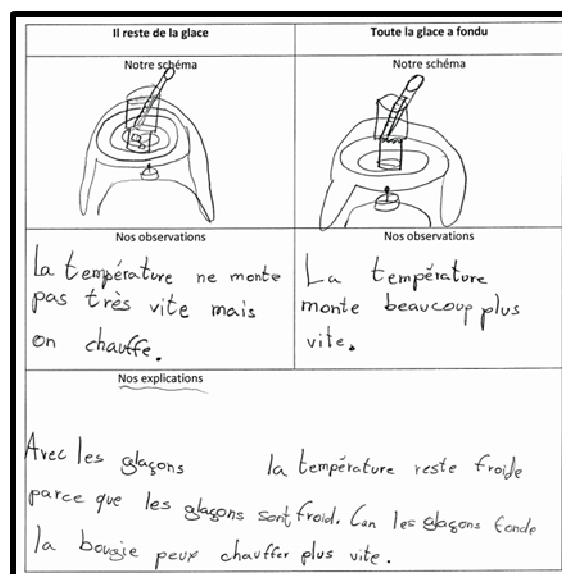 Il reste de la glace
Toute la glace a fondu
Notre schéma
Notre schéma
Nos observations
La température ne monte
pas très vite mais
on chauffe.
Nos observations
La température
monte beaucoup plus
vite.
Nos explications
Avec les glaçons la température reste froide
parce que les glaçons sont froid. Can les glaçons fonde
la bougie peux chauffer plus vite.